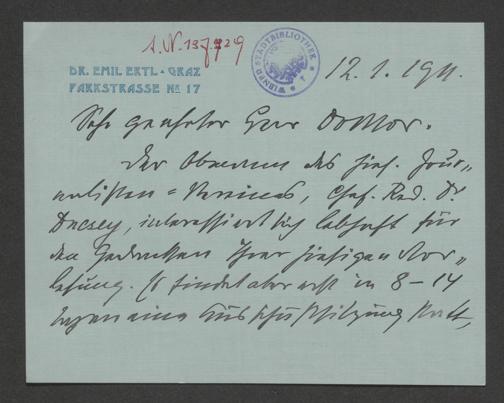 I.N. 137.729
DR. EMIL ERTL · GRAZ
PARKSTRASSE No 17
WIENER STADTBIBLIOTHEK
12.1.1911.
Sehr geehrter Herr Doktor.
Der Obmann des hies. Jour-
nalisten-Vereines, Chef. Red. Dr.
Decsey, interessiert sich lebhaft für
den Gedanken Ihrer hiesigen Vor-
lesung. Es findet aber erst in 8–14
Tagen eine Ausschußsitzung statt,